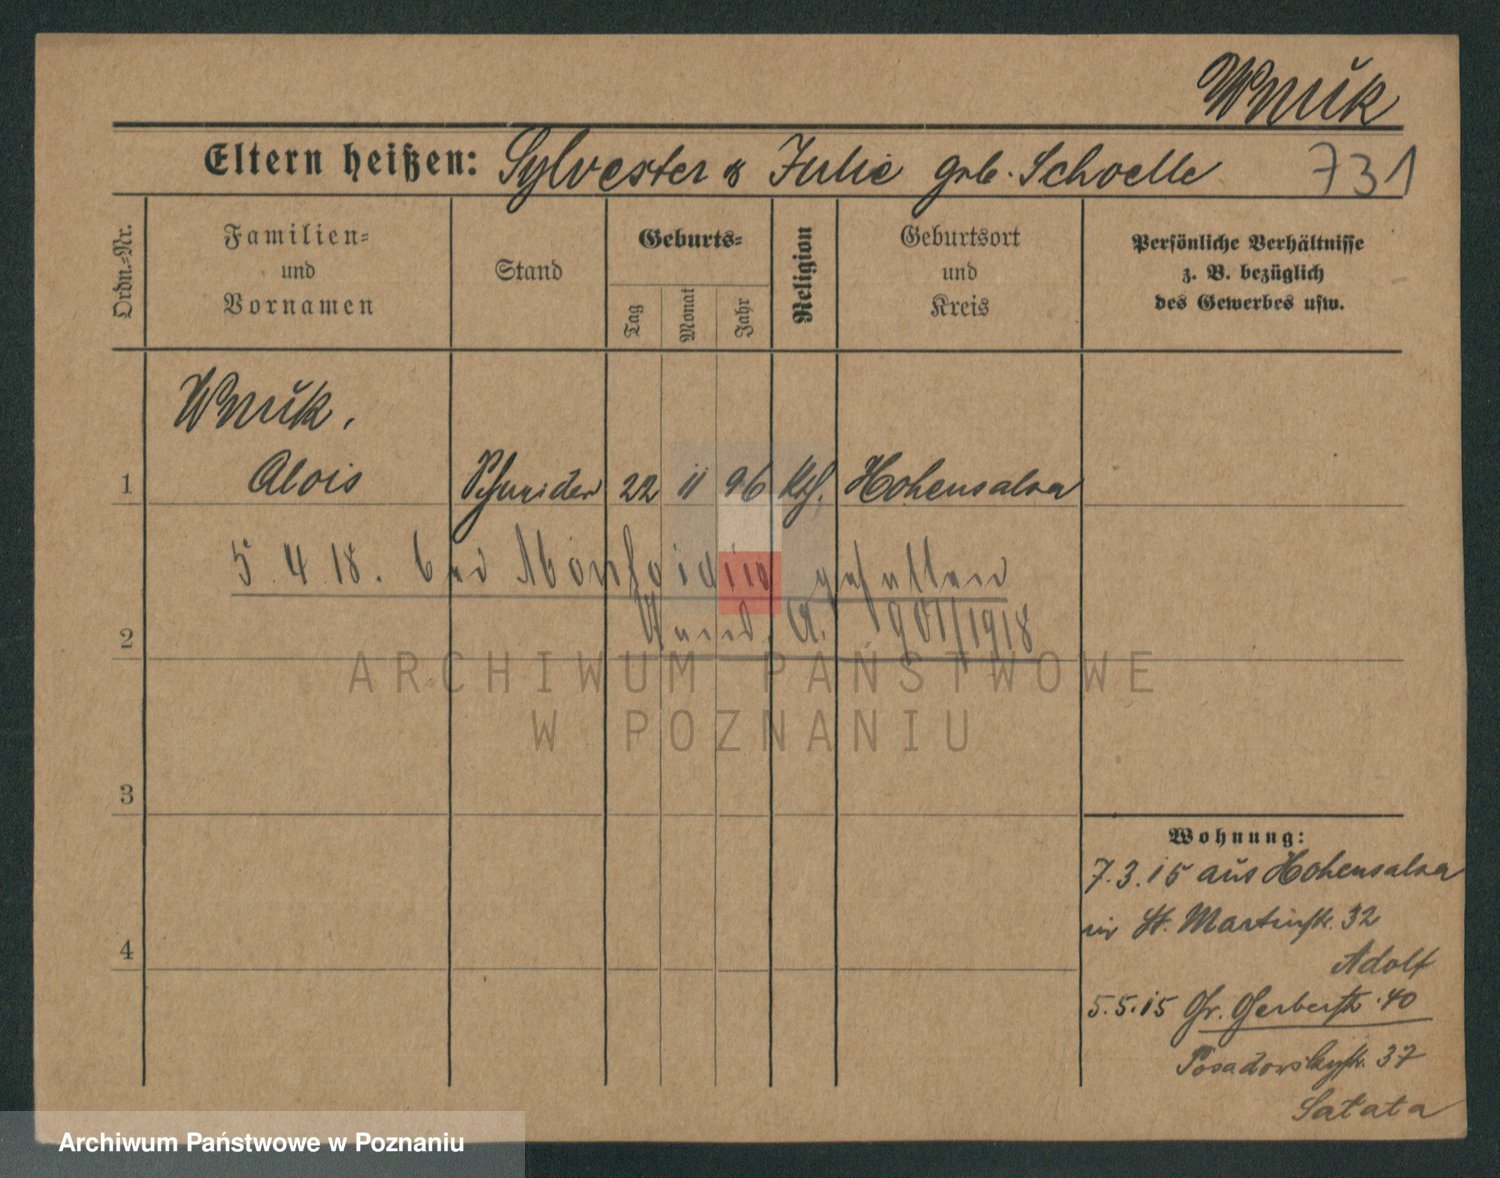 Wnuk
Eltern heißen: Sylvester & Julie geb. Schoelle 731
Ordn.-Nr.
Familien-
und
Vornamen
Stand
Geburts-
Tag
Monat
Jahr
Religion
Geburtsort
und
Kreis
Persönliche Verhältnisse
z. B. bezüglich
des Gewerbes usw.
Wnuk,
1 Alois Schneider 22 11 96 kth. Hohensalza
5 4 18. bei gefallen
Stand. A. 901/1918
2
3
4
Wohnung:
7.3.15 aus Hohensalza
in St. Martinstr. 32
Adolf
5.5.15 Gr. Gerberstr. 40
Posadowskystr. 37
Satata
ARCHIWUM PAŃSTWOWE
W POZNANIU
Archiwum Państwowe w Poznaniu